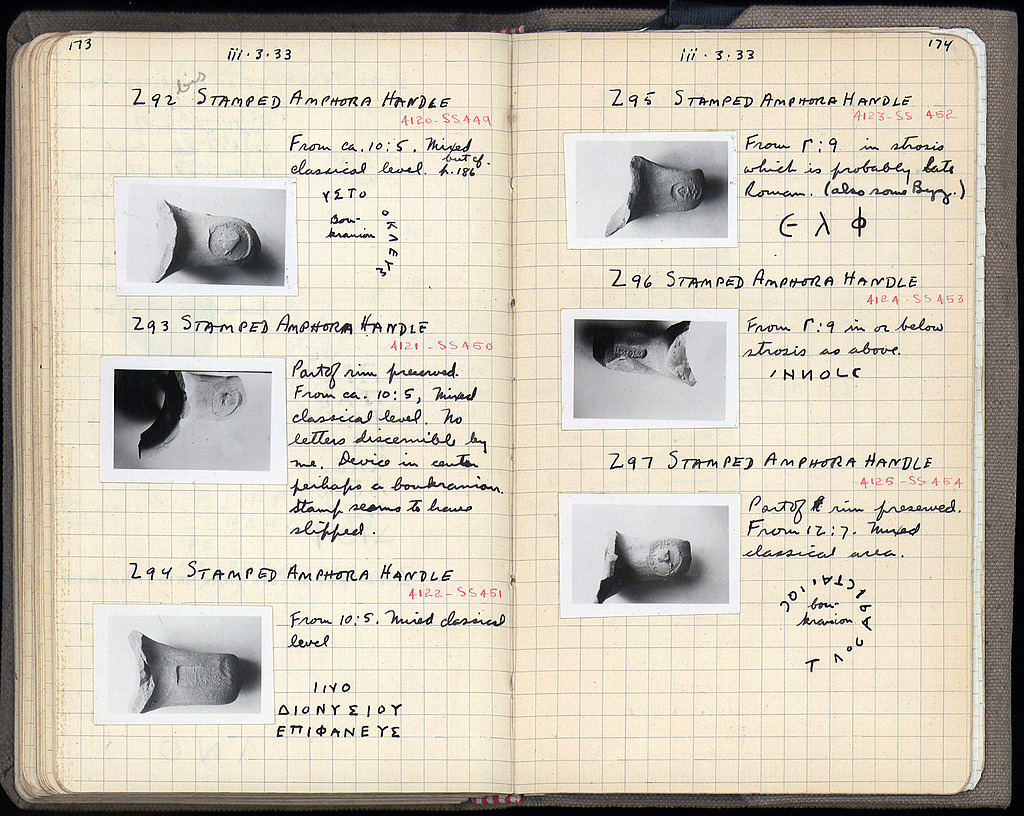 173
iii·3·33
Z92 bis STAMPED AMPHORA HANDLE
4120-SS449
From ca. 10:5. Mixed
but cf.
classical level. p.186
ΥΣΤΟ
Bou-
kranion
Z93 STAMPED AMPHORA HANDLE
4121-SS450
Part of rim preserved.
From ca. 10:5, Mixed
classical level. No
letters discernible by
me. Device in center
perhaps a boukranion.
Stamp seems to have
slipped.
Z94 STAMPED AMPHORA HANDLE
4122-SS451
From 10:5. Mixed classical
level
ΙΙΝΟ
ΔΙΟΝΥΣΙΟΥ
ΕΠΙΦΑΝΕΥΣ
174
iii·3·33
Z95 STAMPED AMPHORA HANDLE
4123-SS 452
From Γ:9 in strosis
which is probably late
Roman. (also some Byz.)
Є λ ϕ
Z96 STAMPED AMPHORA HANDLE
4124-SS453
From Γ:9 in or below
strosis as above.
Z97 STAMPED AMPHORA HANDLE
4125-SS454
Part of rim preserved.
From 12:7. Mixed
classical area.
bou-
kranion